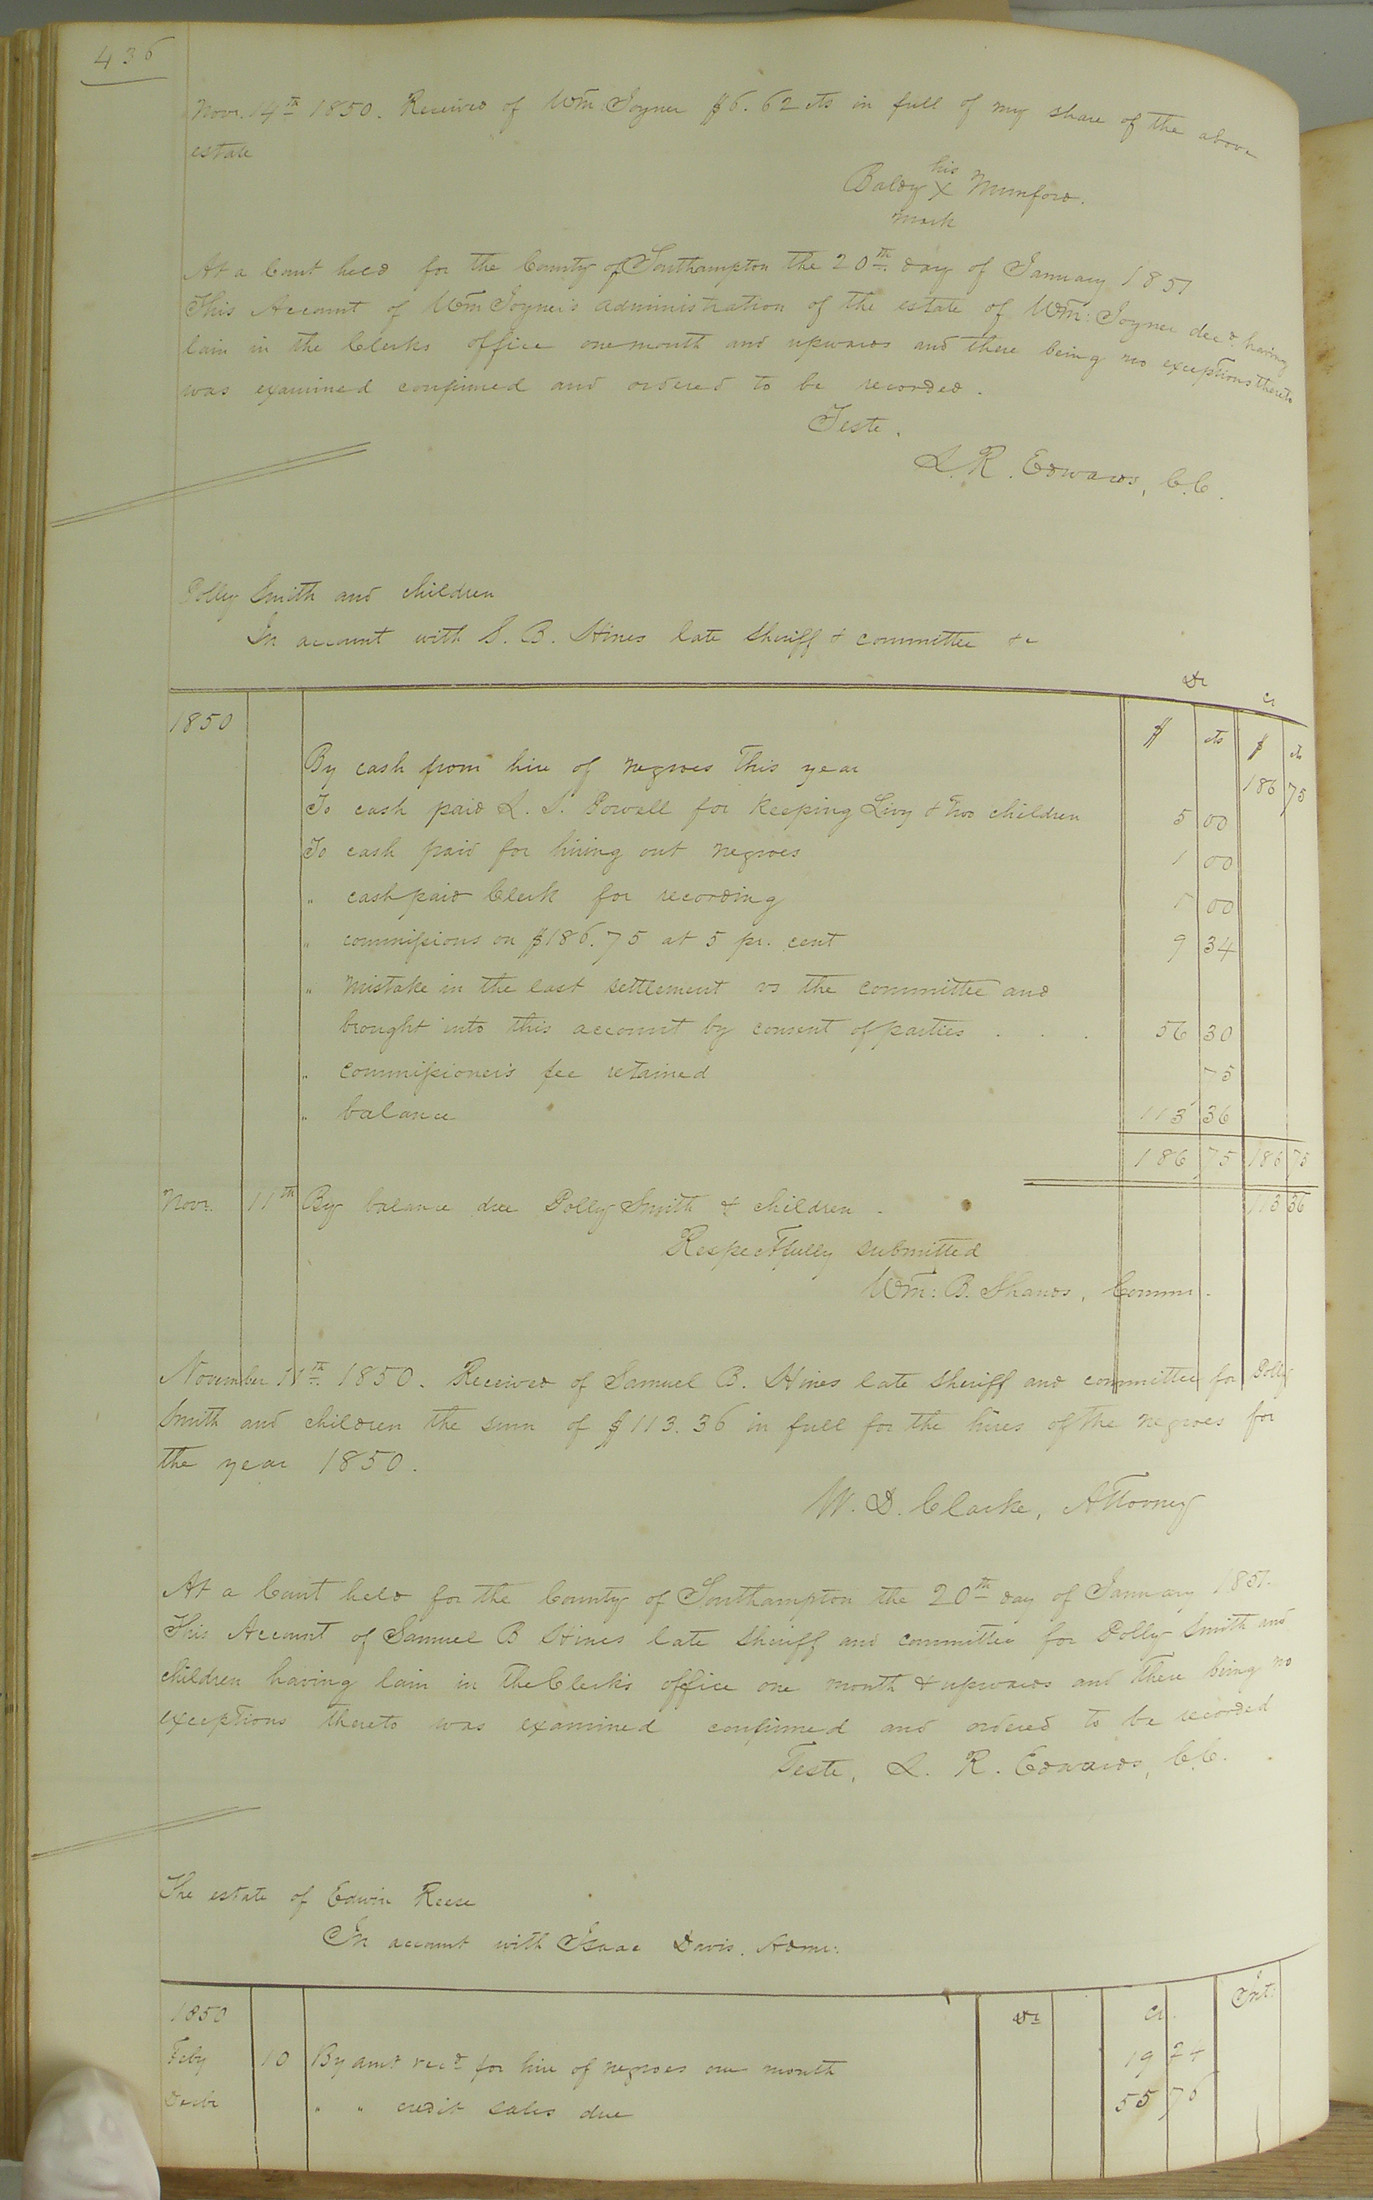 436
Novr. 14th 1850. Received of Wm Joyner $6.62 cts in full of my share of the above
estate
his
Baldy X Mumford.
mark
At a Court held for the County of Southampton the 20th day of January 1851
This Account of Wm Joyner's administration of the estate of Wm: Joyner decd having
lain in the Clerks office one month and upwards and there being no exceptions thereto
was examined confirmed and ordered to be recorded.
Teste.
L. R. Edwards, C.C.
Polly Smith and children
In account with S. B. Hines late Sheriff & committee &c
Dr Cr
1850 $ cts $ cts
By cash from hire of negroes this year 186 75
To cash paid L. S. Powell for keeping Livy & two children 5 00
To cash paid for hiring out negroes 1 00
" cash paid Clerk for recording 1 00
" commissions on $186.75 at 5 pr. cent 9 34
" mistake in the last settlement vs the committee and
brought into this account by consent of parties . . . 56 30
" commissioner's fee retained 75
" balance 113 36
186 75 186 75
Novr. 11th By balance due Polly Smith & children . 113 36
Respectfully submitted
Wm: B. Shands, Commr.
November 11th 1850. Received of Samuel B. Hines late Sheriff and committee for Polly
Smith and children the sum of $113.36 in full for the hires of the negroes for
the year 1850.
W. D. Clarke, Attorney
At a Court held for the County of Southampton the 20th day of January 1851.
This Account of Samuel B Hines late Sheriff and committee for Polly Smith and
children having lain in the Clerk's office one month & upwards and there being no
exceptions thereto was examined confirmed and ordered to be recorded
Teste, L. R. Edwards, C.C.
The estate of Edwin Reese
In account with Isaac Davis. Admr:
1850 Dr Cr. Int:
Feby 10 By amt recd for hire of negroes one month 19 24
Decbr " " credit sales due 55 76